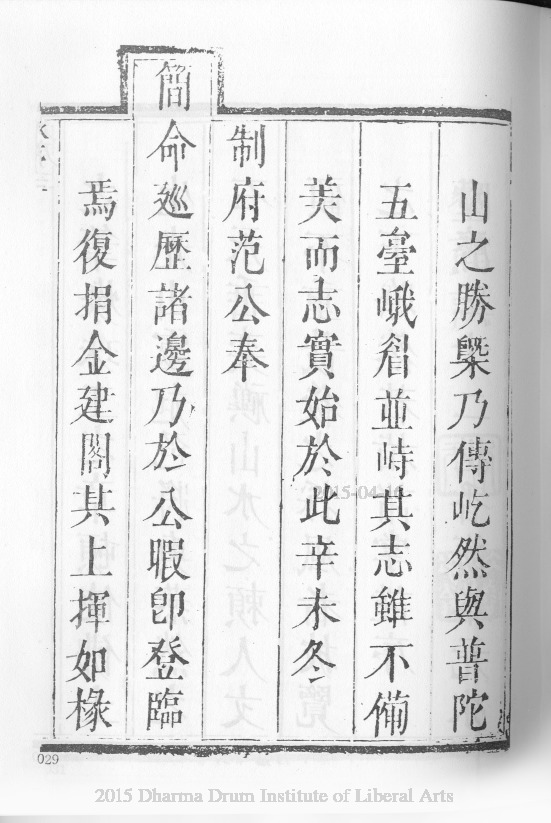 山之勝槩乃傳屹然與普陀
五臺峨眉並峙其志雖不備
美而志實始於此辛未冬
制府范公奉
簡命廵歷諸邊乃於公暇即登臨
焉復捐金建閣其上揮如椽
029
2015-04-16
2015 Dharma Drum Institute of Liberal Arts